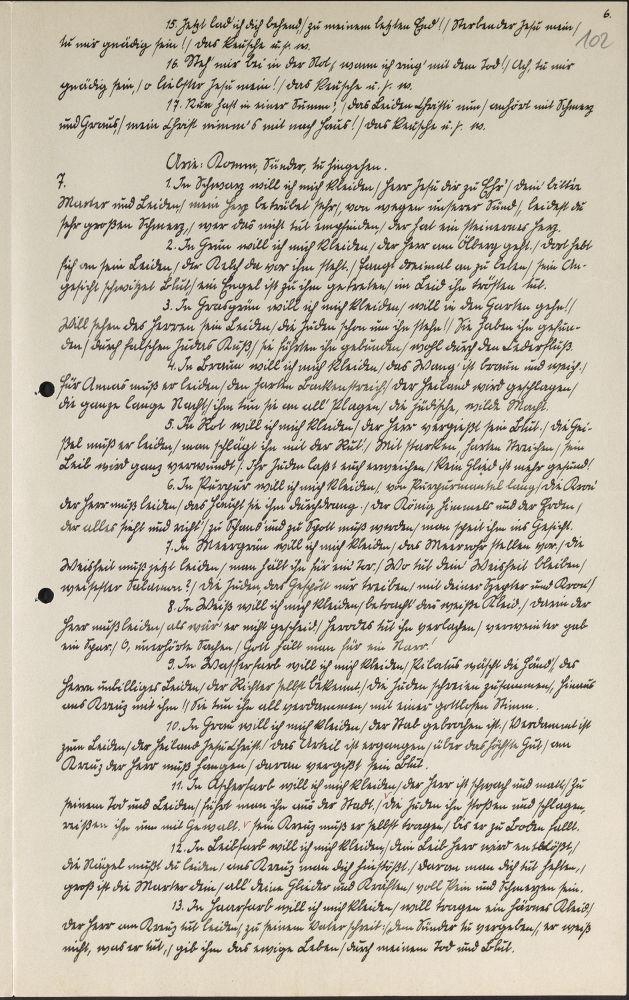 6.
102
15. Jetzt lad ich dich behend/ zu meinem letzten End'!/ Sterbender Jesu mein/
tu mir gnädig sein!/ das keusche u. s. w.
16. Steh mir bei in der Not, wann ich ring' mit dem Tod!/ Ach, tu mir
gnädig sein,/ o liebster Jesu mein!/ das keusche u. s. w.
17. Nun hast in einer Summ'/ das Leiden Christi nun/ anhört mit Schmerz
und Graus,/ mein Christ nimm's mit nach Haus!/ das keusche u. s. w.
Arie: Komm, Sünder, tu hingehen.
7.
1. In Schwarz will ich mich kleiden,/ Herr Jesu dir zu Ehr'/ dein' bittre
Marter und Leiden/ mein Herz betrübet sehr,/ von wegen unserer Sünd,/ leidest du
sehr großen Schmerz,/ wer das nicht tut empfinden, der hat ein steinernes Herz.
2. In Grün will ich mich kleiden,/ der Herr am Ölberg geht./ dort hebt
sich an sein Leiden,/ der Kelch da vor ihm steht./ Fangt dreimal an zu beten,/ sein An-
gesicht schwitzet Blut,/ ein Engel ist zu ihm getreten,/ im Leid ihn trösten tut.
3. In Grasgrün will ich mich kleiden,/ will in den Garten gehn!/
Will sehen des Herren sein Leiden,/ die Juden schon um ihn stehn!/ Sie haben ihn gefun-
den/ durch falschen Judas Kuß,/ sie führten ihn gebunden/ wohl durch den Zederfluß.
4. In Braun will ich mich kleiden,/ das Wang' ist braun und weich./
Für Annas muß er leiden/ den harten Backenstreich,/ der Heiland wird geschlagen/
die ganze lange Nacht,/ ihm tun sie an all' Plagen,/ die jüdische, wilde Macht.
5. In Rot will ich mich kleiden,/ der Herr vergießt sein Blut./ die Gei-
ßel muß er leiden,/ man schlägt ihn mit der Rut'./ Mit starken, harten Streichen/ sein
Leib wird ganz verwundt./ Ihr Juden laßt euch erweichen,/ kein Glied ist mehr gesund!
6. In Purpur will ich mich kleiden,/ von Purpurmantel lang,/ die Kron'
der Herr muß leiden/ das Haupt sie ihm durchdrang./ der König Himmels und der Erden,/
der alles sieht und richt'/ zu Schand und zu Spott muß werden,/ man speit ihm ins Gesicht.
7. In Meergrün will ich mich kleiden,/ das Meerrohr stellen vor,/ die
Weisheit muß jetzt leiden,/ man hält ihn für ein' Tor./ Wo tut dein' Weisheit bleiben,/
weisester Salamon?/ die Juden, das Gespött nur treiben/ mit deiner Szepter und Kron'/
8. In Weiß will ich mich kleiden,/ betracht' das weiße Kleid./ darin der
Herr muß leiden,/ als wär' er nicht gescheid,/ Herodes tut ihn verlachen,/
ein Spar./ O, unerhörte Sachen,/ Gott hält man für ein' Narr.
9. In Wasserfarb will ich mich kleiden,/ Pilatus wäscht die Händ',/ des
Herrn unbilliges Leiden,/ der Richter selbst bekennt,/ die Juden schreien zusammen,/ Hinaus
ans Kreuz mit ihm!/ Sie tun ihn all verdammen,/ mit einer gottlosen Stimm.
10. In Grau will ich mich kleiden,/ der Stab gebrochen ist./ Verdammt ist
zum Leiden,/ der Heiland Jesu Christ./ das Urteil ist ergangen,/ über das höchste Gut,/ am
Kreuz der Herr muß hangen,/ daran vergißt sein Blut.
11. In Ascherfarb will ich mich kleiden,/ der Herr ist schwach und matt,/ Zu
seinem Tod und Leiden,/ führt man ihn aus der Stadt./ die Juden ihn stoßen und schlagen,
reißen ihn um mit Gewalt./ sein Kreuz muß er selbst tragen,/ bis er zu Boden fallt.
12. In Leibfarb will ich mich kleiden,/ dein Leib Herr wird entblößt,/
die Nägel mußt du leiden,/ ans Kreuz man dich hinstößt./ daran man dich tut heften,/
groß ist die Marter dein,/ all' deine Glieder und Kräften,/ voll Pein und Schmerzen sein.
13. In Haarfarb will ich mich kleiden,/ will tragen ein härnes Kleid,/
der Herr am Kreuz tut leiden,/ zu seinem Vater schreit:/ dem Sünder tu vergeben,/ er weiß
nicht, was er tut,/ gib ihm das ewige Leben/ durch meinem Tod und Blut.